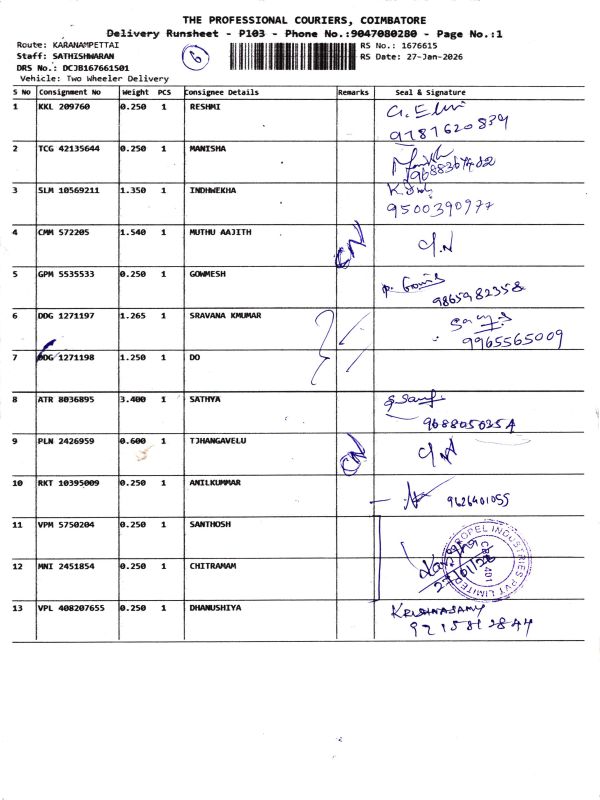 THE PROFESSIONAL COURIERS, COIMBATORE
Delivery Runsheet - P103 - Phone No.:9047080280 - Page No.:1
Route: KARANAMPETTAI
Staff: SATHISHWARAN
DRS No.: DCJB167661501
Vehicle: Two Wheeler Delivery
6
RS No.: 1676615
RS Date: 27-Jan-2026
S No Consignment No Weight PCS Consignee Details Remarks Seal & Signature
1 KKL 209760 0.250 1 RESHMI
9787620839
2 TCG 42135644 0.250 1 MANISHA
3 SLM 10569211 1.350 1 INDHWEKHA
9500390977
4 CMM 572205 1.540 1 MUTHU AAJITH CN
5 GPM 5535533 0.250 1 GOWMESH
9865982358
6 DDG 1271197 1.265 1 SRAVANA KMUMAR
9965565009
7 DDG 1271198 1.250 1 DO
8 ATR 8036895 3.400 1 SATHYA
9688050254
9 PLN 2426959 0.600 1 TJHANGAVELU CN
10 RKT 10395009 0.250 1 ANILKUMMAR
9626401055
11 VPM 5750204 0.250 1 SANTHOSH
12 MNI 2451854 0.250 1 CHITRAMAM
PROPEL INDUSTRIES PVT LIMITED
13 VPL 408207655 0.250 1 DHANUSHIYA KRISHNASAMY